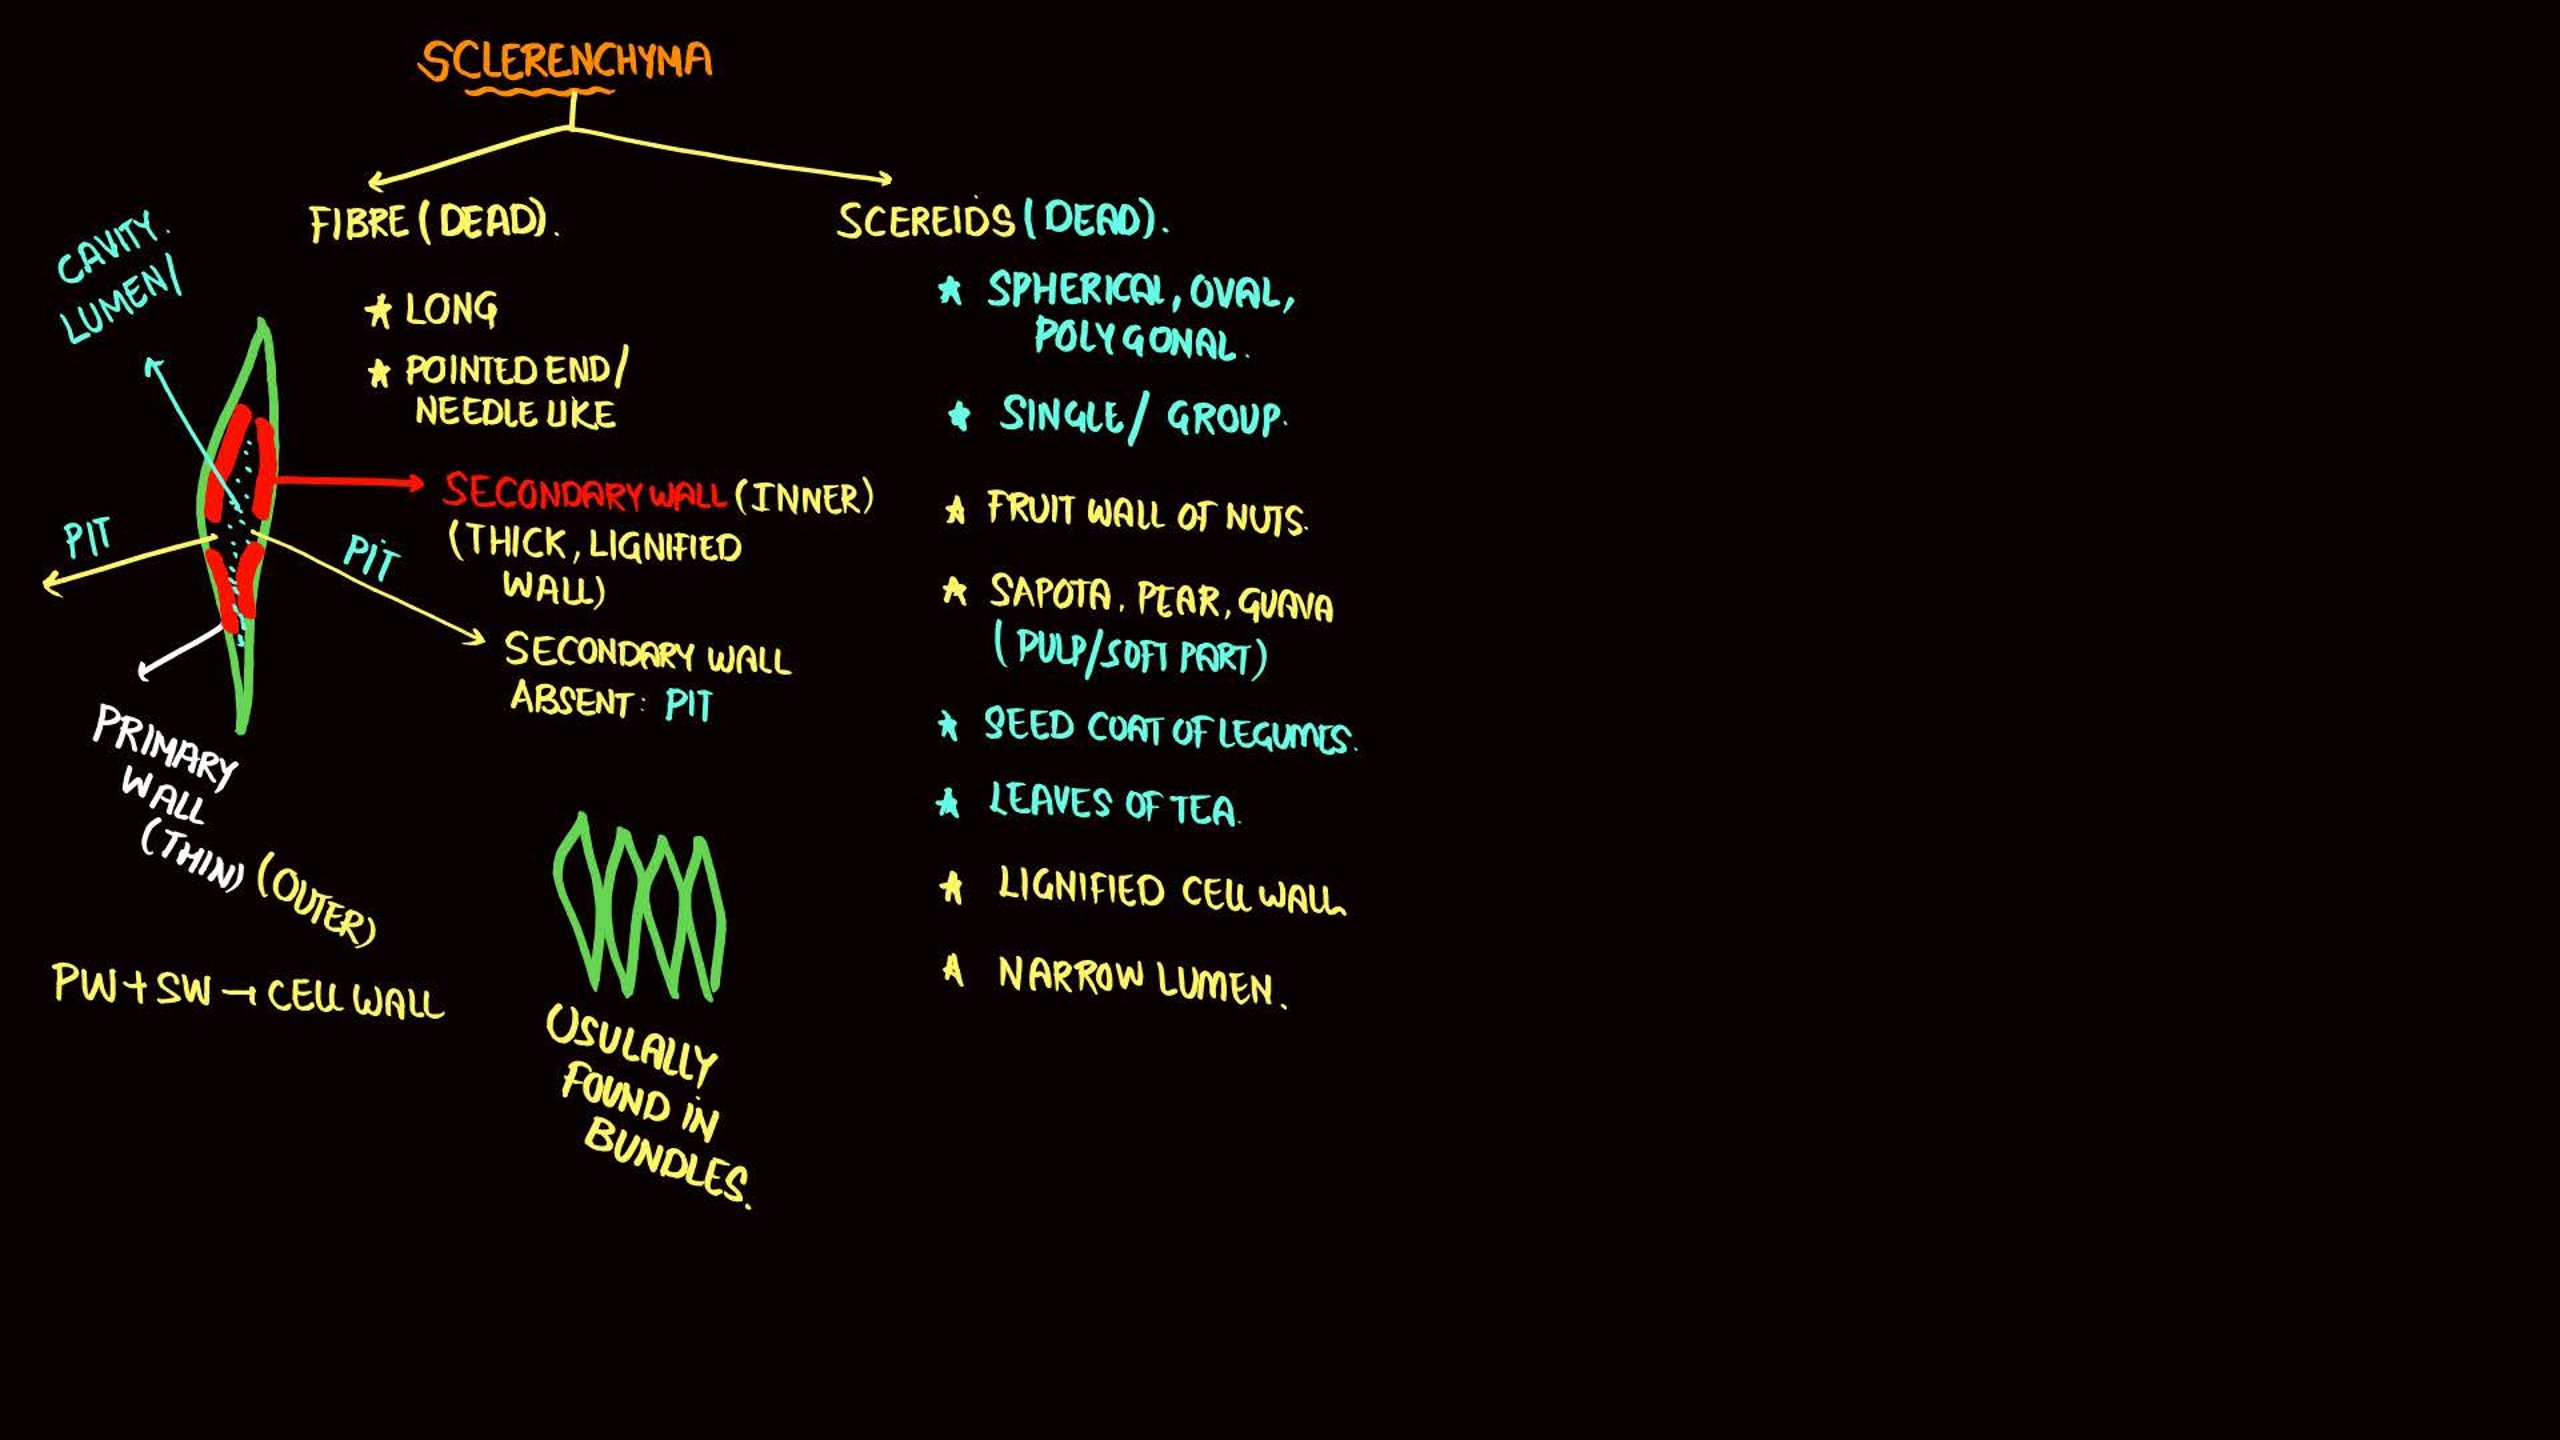 SCLERENCHYMA
FIBRE (DEAD).
CAVITY.
LUMEN/
★ LONG
★ POINTED END/
NEEDLE LIKE
SECONDARY WALL (INNER)
(THICK, LIGNIFIED
WALL)
PIT
PIT
SECONDARY WALL
ABSENT: PIT
PRIMARY
WALL
(THIN) (OUTER)
PW + SW → CELL WALL
USULALLY
FOUND IN
BUNDLES.
SCEREIDS (DEAD).
★ SPHERICAL, OVAL,
POLYGONAL.
★ SINGLE / GROUP.
★ FRUIT WALL OF NUTS.
★ SAPOTA, PEAR, GUAVA
(PULP/SOFT PART)
★ SEED COAT OF LEGUMES.
★ LEAVES OF TEA.
★ LIGNIFIED CELL WALL
★ NARROW LUMEN.